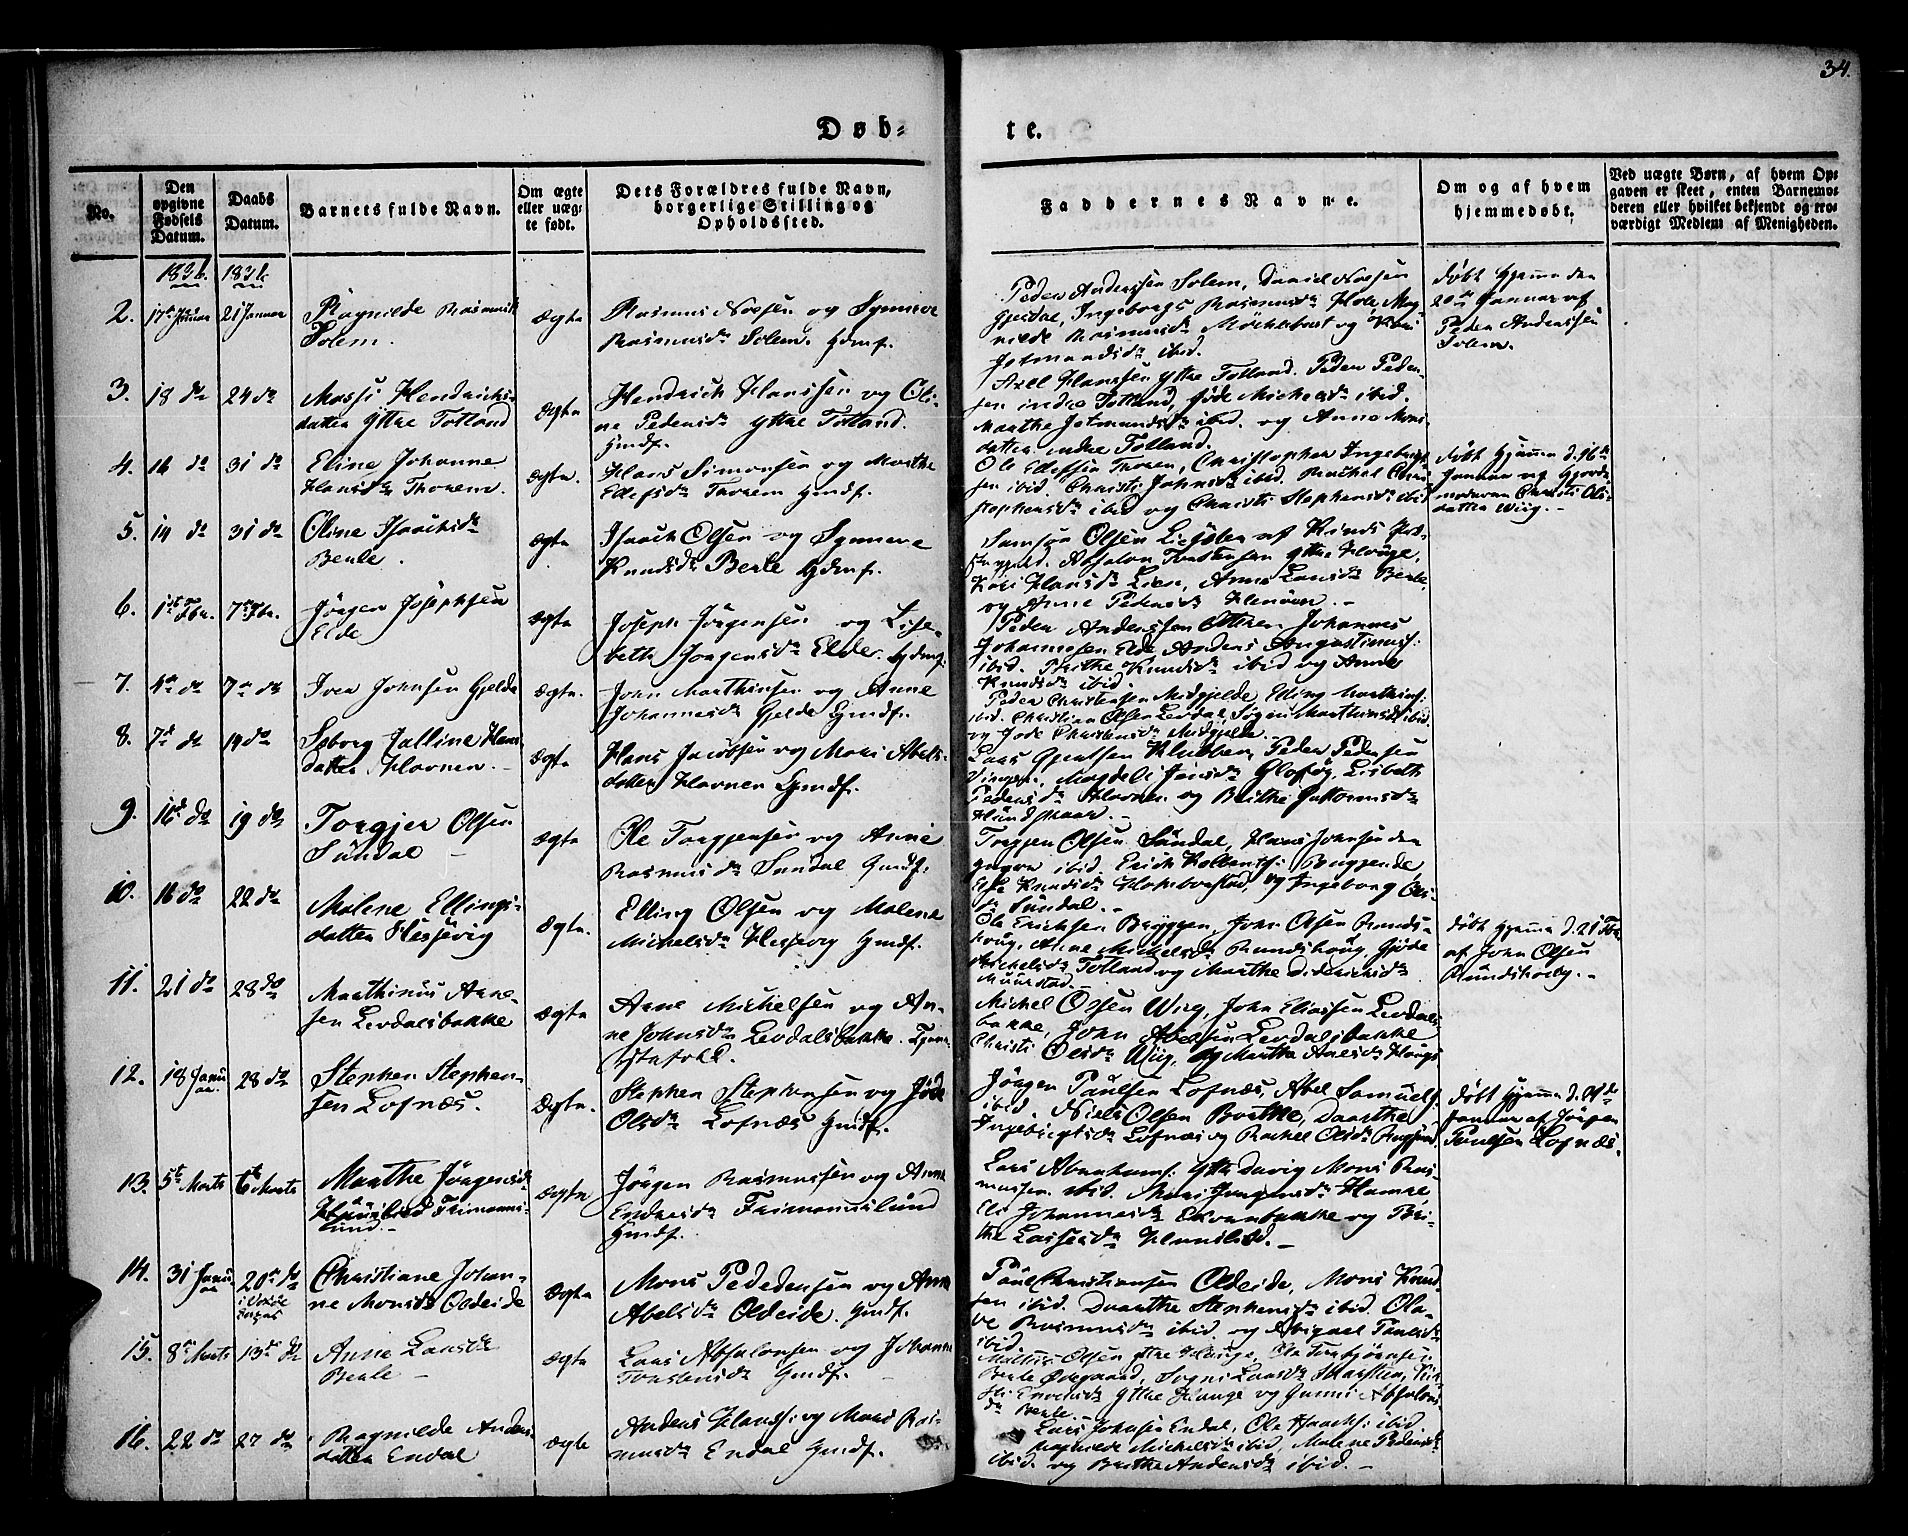 34.
Døb-
te.
No.
Den opgivne Fødsels Datum.
Daabs Datum.
Barnets fulde Navn.
Om ægte eller uægte født.
Dets Forældres fulde Navn, borgerlige Stilling og Opholdssted.
Faddernes Navne.
Om og af hvem hjemmedøbt.
Ved uægte Børn, af hvem Opgaven er skeet, enten Barnemoderen eller hvilket bekjendt og troværdigt Medlem af Menigheden.
1836. 1836
2. 17de Januar 21 Januar
Ragnilde Rasmusd.
Solem.
Ægte
Rasmus og Synneve
Rasmusdr Solem. Gdmf.
Peder Anderssen Solem, Daniel
Gjerdal, Ingeborg Rasmusdr Hole, Mag-
nilde Rasmusdr Myklebust og Kari
Jetmundsdr ibid.
døbt hjemme den
20de Januar af
Peder Anderssen
Solem.
3. 18 do 24 do
Massi Hendrichs-
datter Yttre Totland
Ægte
Hendrich Hanssen og Oli-
ne Pedersdr Yttre Totland.
Gmdf.
Axell Hanssen Yttre Totland. Peder Peder-
sen indre Totland, Jøde Michelsdr ibid.
Marthe Jetmundsdr ibid. og Anne Mons-
datter indre Totland.
4. 16 do 31 do
Eline Johanne
Hansdr Thorem.
Ægte.
Hans Simonsen og Marthe
Thorem Gmdf.
Ole Thorem, Christopher Ingebrigt-
sen ibid. Christi Johnsdr ibid Rachel Chri-
stophersdr ibid og Christi Stephensdr ibid
døbt hjemme d. 16de
Januar af Gjorde-
moderen Christi Ols-
datter Wiig.-
5. 14 do 31 do
Oline Isachsdr
Berle.
Ægte.
Isach Olsen og Synneve
Knudsdr Berle Gdmf.
Samson Olsen af Kinds Præ-
Absalon Torstensen Yttre Houge,
Kari Hansdr Lien, Anne Larsdr Berle,
og Anne Pedersdr
6. 1ste Fbr. 7de Fbr.
Jørgen Josephsen
Elde
Ægte
Joseph Jørgensen og Lise-
beth Jørgensdr Elde. Gdmf.
Peder Anderssen Johannes
Johannesen Elde Anders Augustinuss:
ibid. Brithe Knudsdr ibid og Anne
Knudsdr ibid.
7. 4de do 7de do
Iver Johnsen Gjelde
Ægte.
John Marthinsen og Anne
Johannesdr Gjelde Gmdf.
Peder Christensen Midgjelde, Elling Marthins:
ibid. Christian Olsen Levdal, Søgni Marthinsdr ibid
og Jøde Christensdr Midgjelde.
8. 7de do 14 do
Soborg Jalline Hans-
datter Havnen.
Ægte
Hans Jacobsen og Mari Abels-
datter Havnen Gmdf.
Lars Klubben, Peder Pedersen
Vingen. Magdeli Jensdr Lisbeth
Pedersdr Havnen og Brithe Guttormsdr
9. 16de do 19 do
Torgjer Olsen
Sündal
Ægte
Ole Torgjersen og Anne
Rasmusdr Sundal Gmdf.
Torgjer Olsen Sündal, Hans Johnsen den
yngre ibid. Erich Bryggende
Knudsdr og Ingeborg Ols-
dr Sündal.
10. 16 do 22 do
Malene Ellings-
datter Hessevig
Ægte.
Elling Olsen og Malene
Michelsdr Hessevig Gmdf.
Ole Erichsen Bryggen, John Olsen Runds-
houg, Anne Michelsdr Rundshoug, Gjøde
Michelsdr Totland og Marthe Didrichsdr
Maurstad.-
døbt hjemme d. 21 Fbr
af John Olsen
Rundshoug.-
11. 21 do 28 do
Marthinus Arne-
sen Levdalsbakke
Ægte
Arne Michelsen og An-
ne Johnsdr Levdalsbakke. Tjene-
stefolk.
Michel Olsen Wiig, John Eliassen Levdals-
bakke, John Levdalsbakke
Christi Olsdr Wiig, og Marthe Houge
12. 18 Januar 28 do
Stephen Stephen-
sen Lofnæs.
Ægte.
Stephen Stephensen og Jøde
Olsdr Lofnæs Gmdf.
Jørgen Paulsen Lofnæs, Abel Samuels:
ibid. Niels Olsen Borthe, Daarthe
Ingebrigtsdr Lofnæs og Rachel Olsdr
døbt hjemme d.
Januar af Jørgen
Paulsen Lofnæs.
13. 5te Marts 6te Marts
Marthe Jørgensdr
Friemanns-
lund.-
Ægte
Jørgen Rasmussen og Anne
Endresdr Friemannslund
Gmdf.
Lars Abrahams: Yttre Davig Mons Ras-
mussen ibid. Mari Jørgensdr Hamre,
Eli Johannesdr og Bri-
the Lassesdr
14. 31 Januar 20de do
i Vogs
Sogn
Christiane Johan-
ne Monsdr Oldeide
Ægte
Mons Pedersen og Anne
Abelsdr Oldeide. Gmdf.
Paul Christiansen Oldeide, Mons Knud-
sen ibid. Daarthe Stephensdr ibid. Ola-
ve Rasmusdr ibid og Abigael Paulsdr
ibid.
15. 8de Marts 13de do
Anne Larsdr
Berle
Ægte
Lars Absalonsen og Johanne
Torstensdr Gmdf.
Mattis Olsen Yttre Houge, Ole Torbjørnsen
Berle Ødegaard, Søgni Larsdr Marsten,
Yttre Houge og Gunni Absalons-
dr Berle.
16. 22 do 27 do
Ragnilde Anders-
datter Endal
Ægte
Anders Hanss: og Mari Ras-
musdr Endal Gmdf.
Lars Johnsen Endal, Ole Isachs: ibid
Ragnilde Michelsdr ibid, Malene Pedersdr
ibid. og Brithe Andersdr ibid.-